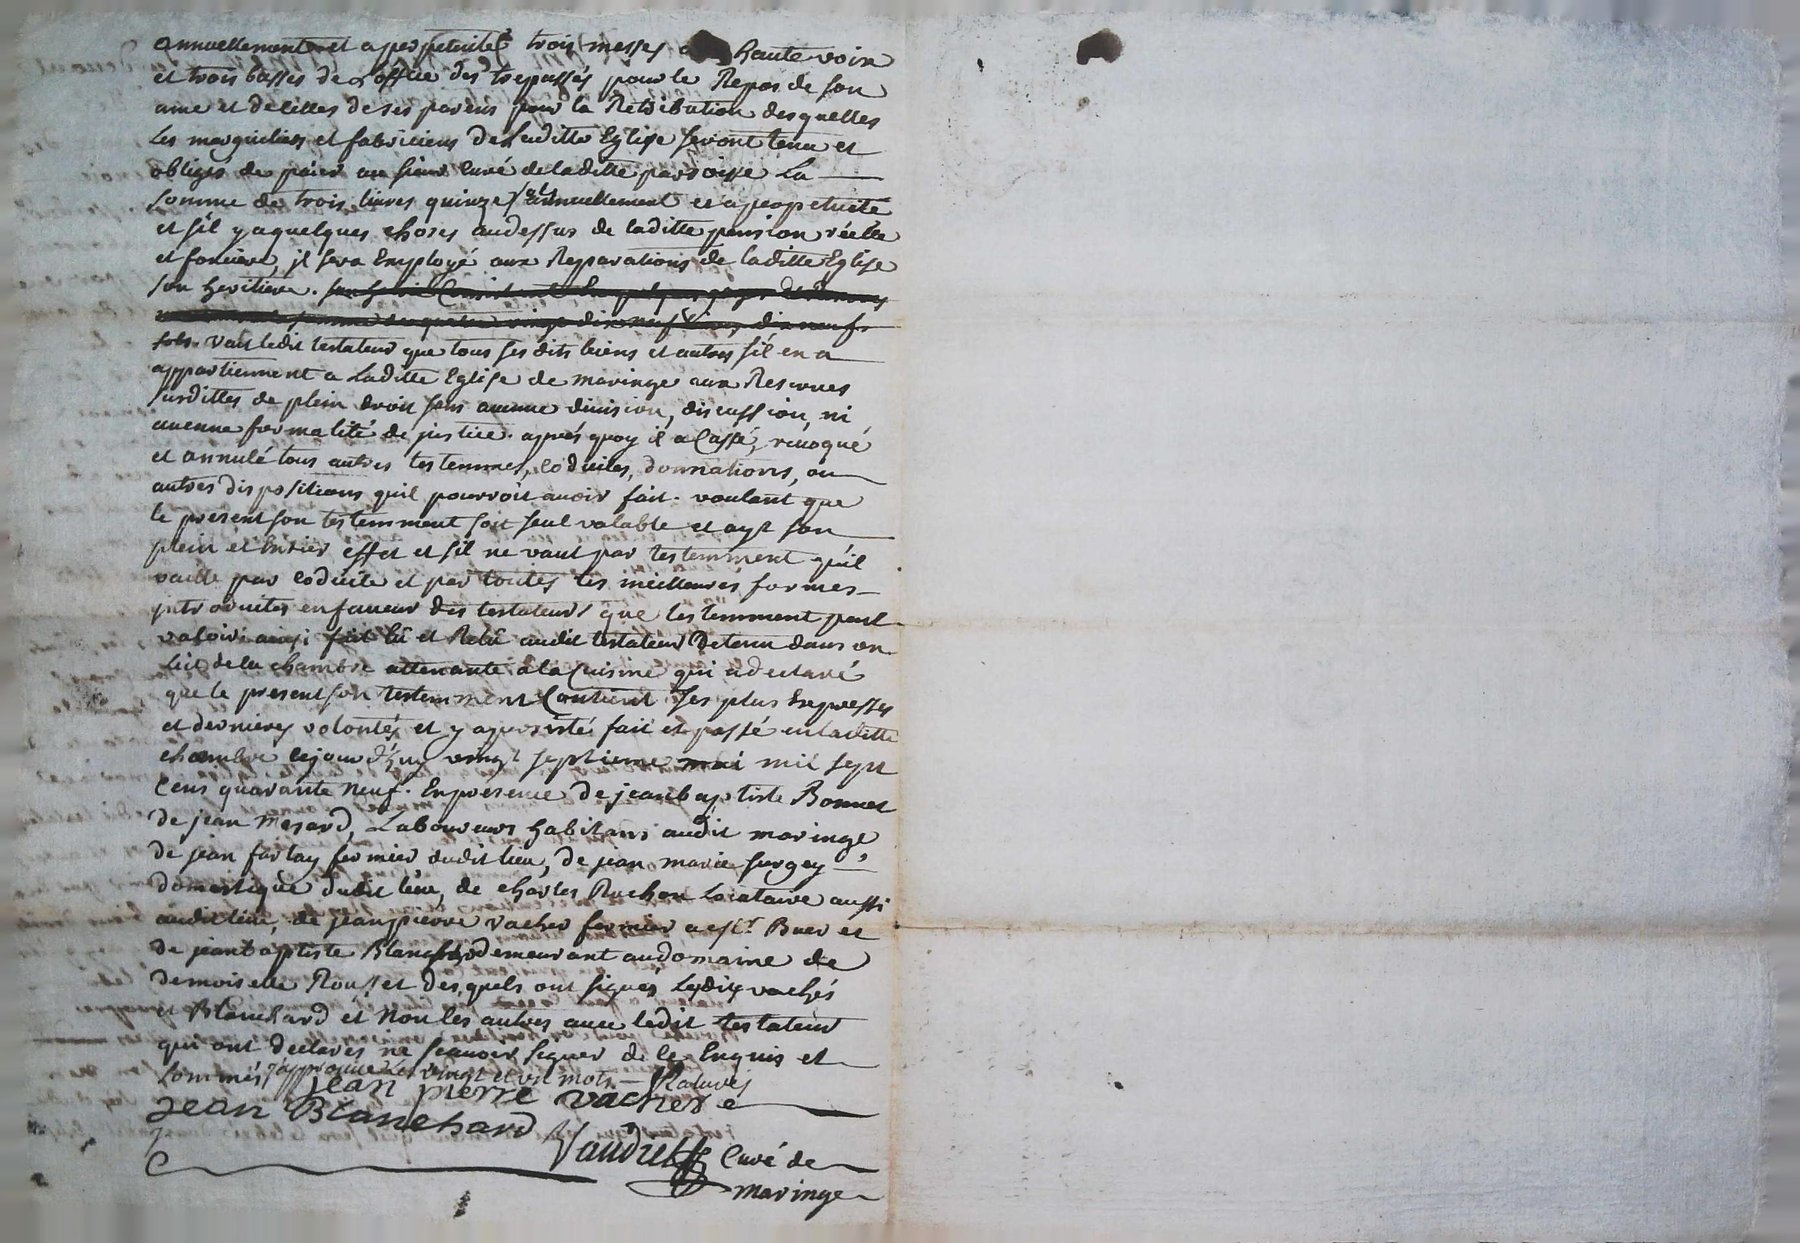 annuellement et a perpetuité trois messes a haute voix
et trois basses de l'office des trepassés pour le Repos de son
ame et de celles de ses parens pour la Retribution desquelles
les marguiliers et fabriciens de laditte Eglise seront tenu et
obligés de païer au sieur Curé de laditte parroisse La
somme de trois livres quinze sols annuellement et a perpetuité
et s'il y a quelques choses audessus de laditte pension réelle
et fonciere, il sera Employé aux Reparations de laditte Eglise
son heritiere.
sols. Veut ledit testateur que tous ses dits biens et autres s'il en a
appartiennent a Laditte Eglise de maringe aux Reserves
susdittes de plein droit sans aucune division, discussion, ni
aucune formalité de justice. aprés quoy il a Cassé, revoqué
et annulé tous autres testemens, codiciles, donnations, ou
autres dispositions qu'il pourroit avoir fait. voulant que
le present son testemment soit seul valable et ayt son
plein et Entier effet et s'il ne vaut par testemment qu'il
vaille par codicile et par toutes les meilleures formes
introduites en faveur des testateurs que testemment peut
valoir. ainsi fait lû et Relû audit testateur Detenu dans un
Lit de la chambre attenante a la Cuisine qui a declaré
que le present son testemment Contient ses plus Expresses
et dernieres volontés et y a persisté fait et passé en laditte
chambre cejourd'huy vingt septieme mai mil sept
Cens quarante neuf. En presence de jean baptiste Bonnet
de jean Mesard, Laboureurs habitans audit maringe,
de jean farlay fermier dudit lieu, de jean marie surgey
domestique dudit lieu, de charles Rochon Locataire aussi
audit lieu, de jean pierre vacher fermier a st. Buer et
de jean baptiste Blanchard demeurant au domaine de
demoiselle Rousset desquels ont signés Lesdits vachés
et Blanchard et Non les autres avec ledit testateur
qui ont declarés ne sçavoir signer de ce Enquis et
sommés, j'approuve les vingt et un mots Raturés
jean pierre vachere
jean Blanchard
Curé de
maringe